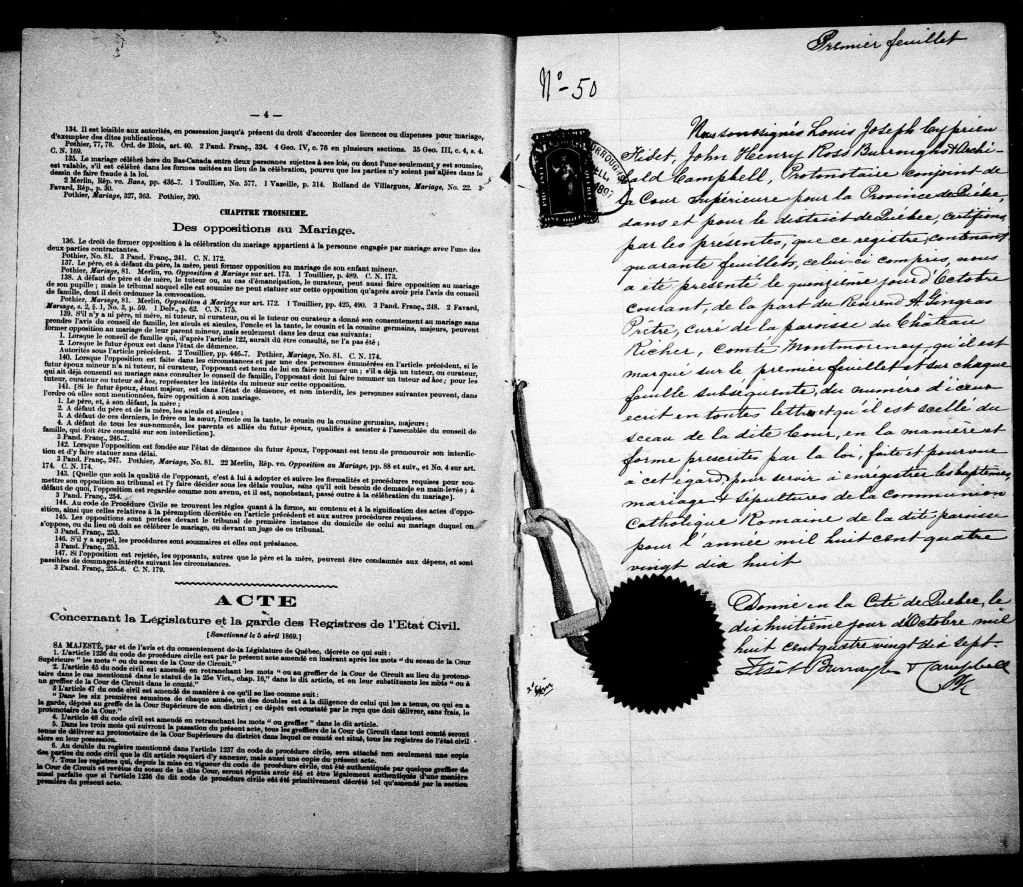 — 4 —
134. Il est loisible aux autorités, en possession jusqu'à présent du droit d'accorder des licences ou dispenses pour mariage,
d'exempter des dites publications.
Pothier, 77, 78. Ord. de Blois, art. 40. 2 Pand. Franç., 324. 4 Geo. IV, c. 76 en plusieurs sections. 35 Geo. III, c. 4, s. 4.
C. N. 169.
135. Le mariage célébré hors du Bas-Canada entre deux personnes sujettes à ses lois, ou dont l'une seulement y est soumise,
est valable, s'il est célébré dans les formes usitées au lieu de la célébration, pourvu que les parties n'y soient pas allées dans le
dessein de faire fraude à la loi.
2 Merlin, Rép. vo. Bans, pp. 436-7. 1 Touillier, No. 577. 1 Vazeille, p. 314. Rolland de Villargues, Mariage, No. 22. 3
Favard, Rép., p. 30.
Pothier, Mariage, 327, 363. Pothier, 390.
CHAPITRE TROISIEME.
Des oppositions au Mariage.
136. Le droit de former opposition à la célébration du mariage appartient à la personne engagée par mariage avec l'une des
deux parties contractantes.
Pothier, No. 81. 3 Pand. Franç., 241. C. N. 172.
137. Le père, et à défaut du père, la mère, peut former opposition au mariage de son enfant mineur.
Pothier, Mariage, 81. Merlin, vo. Opposition à Mariage sur art. 173. 1 Touillier, p. 489. C. N. 173.
138. A défaut de père et de mère, le tuteur ou, au cas d'émancipation, le curateur, peut aussi faire opposition au mariage
de son pupille; mais le tribunal auquel elle est soumise ne peut statuer sur cette opposition qu'après avoir pris l'avis du conseil
de famille, dont il doit ordonner la convocation.
Pothier, Mariage, 81. Merlin, Opposition à Mariage sur art. 172. 1 Touillier, pp. 425, 490. 3 Pand. Franç., 248. 2 Favard,
Mariage, s. 2, § 1, No. 3, p. 59. 1 Delv., p. 62. C. N. 175.
139. S'il n'y a ni père, ni mère, ni tuteur, ni curateur, ou si le tuteur ou curateur a donné son consentement au mariage sans
prendre l'avis du conseil de famille, les aïeuls et aïeules, l'oncle et la tante, le cousin et la cousine germains, majeurs, peuvent
former opposition au mariage de leur parent mineur, mais seulement dans les deux cas suivants:
1. Lorsque le conseil de famille qui, d'après l'article 122, aurait dû être consulté, ne l'a pas été;
2. Lorsque le futur époux est dans l'état de démence.
Autorités sous l'article précédent. 2 Touillier, pp. 446-7. Pothier, Mariage, No. 81. C. N. 174.
140. Lorsque l'opposition est faite dans les circonstances et par une des personnes énumérées en l'article précédent, si le
futur époux mineur n'a ni tuteur, ni curateur, l'opposant est tenu de lui en faire nommer un; s'il a déjà un tuteur, ou curateur,
qui ait déjà consenti au mariage sans consulter le conseil de famille, l'opposant doit lui faire nommer un tuteur ad hoc; pour les
tuteur, curateur ou tuteur ad hoc, représenter les intérêts du mineur sur cette opposition.
141. [Si le futur époux, étant majeur, est dans l'état de démence, et non interdit, les personnes suivantes peuvent, dans
l'ordre où elles sont mentionnées, faire opposition à son mariage.
1. Le père, et, à son défaut, la mère;
2. A défaut du père et de la mère, les aïeuls et aïeules;
3. A défaut de ces derniers, le frère ou la sœur, l'oncle ou la tante, le cousin ou la cousine germains, majeurs;
4. A défaut de tous les sus-nommés, les parents et alliés du futur époux, qualifiés à assister à l'assemblée du conseil de
famille, qui doit être consulté sur son interdiction].
3 Pand. Franç., 246-7.
142. Lorsque l'opposition est fondée sur l'état de démence du futur époux, l'opposant est tenu de promouvoir son interdic-
tion et d'y faire statuer sans délai.
3 Pand. Franç., 247. Pothier, Mariage, No. 81. 22 Merlin, Rép. vo. Opposition au Mariage, pp. 88 et suiv., et No. 4 sur art.
174. C. N. 174.
143. [Quelle que soit la qualité de l'opposant, c'est à lui à adopter et suivre les formalités et procédures requises pour sou-
mettre son opposition au tribunal et l'y faire décider sous les délais voulus, sans qu'il soit besoin de demande en main-levée; à
défaut de quoi, l'opposition est regardée comme non avenu, et il est, nonobstant, passé outre à la célébration du mariage].
3 Pand. Franç., 254.
144. Au code de Procédure Civile se trouvent les règles quant à la forme, au contenu et à la signification des actes d'oppo-
sition, ainsi que celles relatives à la péremption décrétée en l'article précédent et aux autres procédures requises.
145. Les oppositions sont portées devant le tribunal de première instance du domicile de celui au mariage duquel on
s'oppose, ou du lieu où doit se célébrer le mariage, ou devant un juge de ce tribunal.
3 Pand. Franç., 253.
146. S'il y a appel, les procédures sont sommaires et elles ont préséance.
3 Pand. Franç., 253.
147. Si l'opposition est rejetée, les opposants, autres que le père et la mère, peuvent être condamnés aux dépens, et sont
passibles de dommages-intérêts suivant les circonstances.
3 Pand. Franç., 255-6. C. N. 179.
ACTE
Concernant la Législature et la garde des Registres de l'Etat Civil.
[Sanctionné le 5 avril 1869.]
SA MAJESTÉ, par et de l'avis et du consentement de la Législature de Québec, décrète ce qui suit:
1. L'article 1236 du code de procédure civile est par le présent acte amendé en insérant après les mots "du sceau de la Cour
Supérieure" les mots "ou du sceau de la Cour de Circuit."
2. L'article 45 du code civil est amendé en retranchant les mots "ou au greffier de la Cour de Circuit au lieu du protono-
taire dans le cas mentionné dans le statut de la 25e Vict., chap. 16," dans le dit article, et en leur substituants les mots "ou à
un greffier de la Cour de Circuit dans le comté."
3 L'article 47 du code civil est amendé de manière à ce qu'il se lise comme suit:
"Dans les six premières semaines de chaque année, un des doubles est à la diligence de celui qui les a tenus, ou qui en a
la garde, déposé au greffe de la Cour Supérieure de son district; ce dépôt est constaté par le reçu que doit délivrer, sans frais, le
protonotaire de la Cour."
4. L'article 48 du code civil est amendé en retranchant les mots "ou greffier" dans le dit article.
5. Dans les trois mois qui suivront la passation du présent acte, tous les greffiers de la Cour de Circuit dans tout comté seront
tenus de délivrer au protonotaire de la Cour Supérieure du district dans lequel ce comté est situé, tous les registres de l'état civil
alors en leur possession.
6. Au double du registre mentionné dans l'article 1237 du code de procédure civile, sera attaché non seulement une copie
des parties du code civil que le dit article requiert d'y annexer, mais aussi une copie du présent acte.
7. Tous les registres qui, depuis la mise en vigueur du code de procédure civile, ont été authentiqués par quelque greffier de
la Cour de Circuit et revêtus du sceau de la dite Cour, seront réputés avoir été et être légalement authentiqués d'une manière
aussi parfaite que si l'article 1236 du dit code de procédure civile eût été primitivement décrété tel qu'amendé par la section
première du présent acte.
Premier feuillet
No - 50
BURROUGHS
ELL,
1897
Nous soussignés Louis Joseph Cyprien
Fiset, John Henry Ross Burroughs & Archi-
bald Campbell, Protonotaire conjoint de
la Cour Supérieure pour la Province de Québec,
dans et pour le district de Québec, certifions
par les présentes, que ce registre, contenant
quarante feuillets, celui-ci compris, nous
a été présenté le quinzième jour d'Octobre
courant, de la part du Révérend A. Gingras
Prêtre, curé de la paroisse du Château
Richer, comté Montmorency, qu'il est
marqué sur le premier feuillet et sur chaque
feuille subséquente, du numéro d'iceux
écrit en toutes lettres et qu'il est scellé du
sceau de la dite Cour, en la manière et
forme prescrites par la loi, faite et pourvue
à cet égard, pour servir à enrégistrer les baptêmes,
mariages & sépultures de la communion
Catholique Romaine de la dite paroisse
pour l'année mil huit cent quatre
vingt dix huit
Donné en la Cité de Québec, le
dix huitième jour d'Octobre mil
huit cent quatre vingt dix sept.
Fiset Burroughs & Campbell